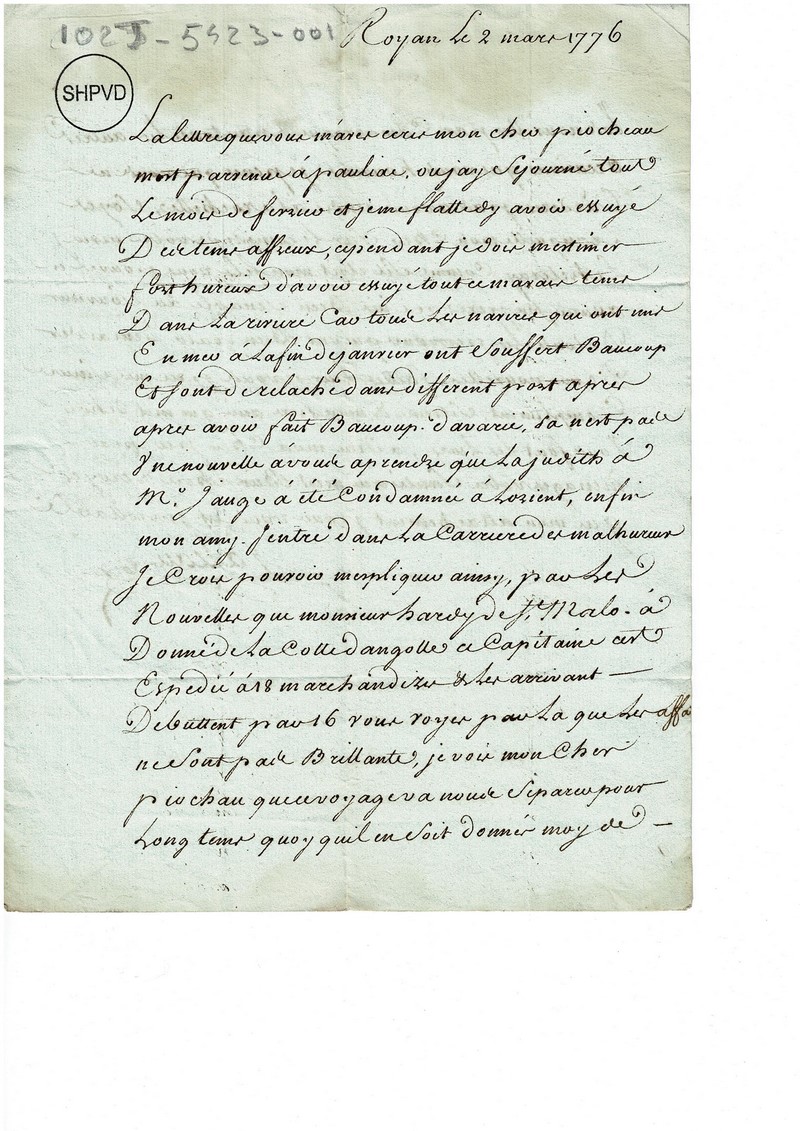 102J-5423-001
Royan Le 2 mars 1776
SHPVD
La lettre que vous mavés ecris mon cher piocheau
mest parvenue á pauliac, ou jay Sejourné tout
Le mois de fevrier et je me flatte dy avoir essuyé
Des tems affreux, cependant je dois mestimer
fort hureux d'avoir essuyé tout ce mauvais tems
Dans La riviere Car tous Les navires qui ont mis
En mer á La fin de janvier ont Souffert Baucoup
Et sont de relaché dans different port aprés
aprés avoir fait Baucoup d'avarie, sa nest pas
Une nouvelle á vous aprendre que La judith á
Mr. Jauge á été Condamnée á Lorient, enfin
mon amy. J'entre dans La Carriere des malhureux
Je Crois pouvoir mespliquer ainsy, par Les
Nouvelles que monsieur hardy de St. Malo - á
Donné de La Cotte dangolle ce Capitaine est
Espedié á 18 marchandizes & Les arrivant —
Debuttent par 16 vous voyés par La que Les affai
ne Sont pas Brillante, je vois mon Cher
piochau que ce voyage va nous Separer pour
Long tems quoy quil en Soit donnés moy de —